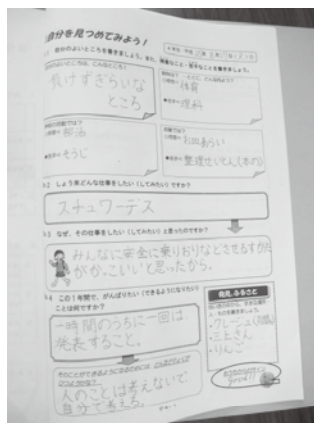 自分を見つめてみよう！
自分のよいところを書きましょう。また、得意なこと・苦手なことを書きましょう。
負けずぎらいな
ところ
体育
理科
部活
そうじ
お皿あらい
整理せいとん(本の)
しょう来どんな仕事をしたい（してみたい）ですか？
スチュワーデス
なぜ、その仕事をしたい（してみたい）と思ったのですか？
みんなに安全に乗りおりなどさせるすがた
がかっこいいと思ったから。
この１年間で、がんばりたい（できるようになりたい）
ことは何ですか？
一時間のうちに一回は
発表すること。
そのことができるようになるためには
人のことは考えないで
自分で考える。
発見、ふるさと
三上さん
りんご